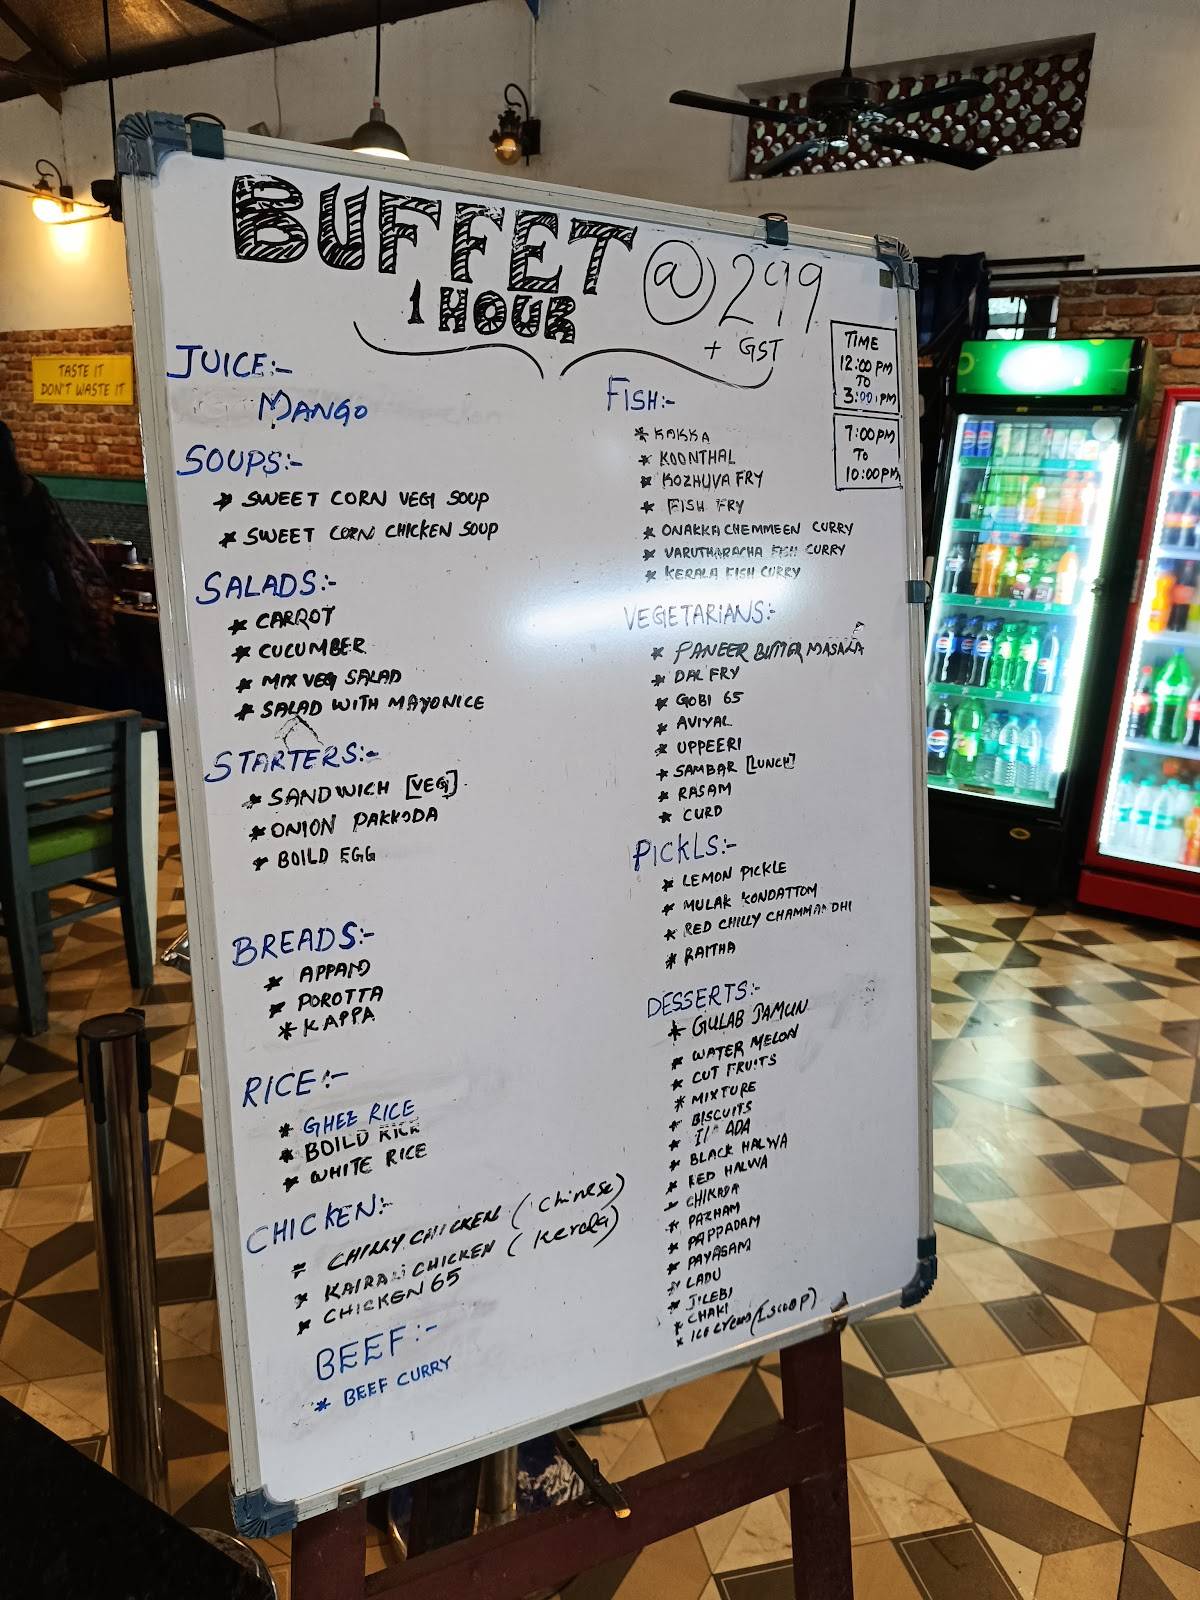 TASTE IT
DON'T WASTE IT
BUFFET @ 299
1 HOUR
+ GST
TIME
12:00 PM
TO
3:00 PM
7:00PM
To
10:00PM
JUICE:-
MANGO
SOUPS:-
* SWEET CORN VEG SOUP
* SWEET CORN CHICKEN SOUP
SALADS:-
* CARROT
* CUCUMBER
* MIX VEG SALAD
* SALAD WITH MAYONICE
STARTERS:-
* SANDWICH [VEG]
* ONION PAKKODA
* BOILD EGG
BREADS:-
* APPAM
* POROTTA
* KAPPA
RICE:-
* GHEE RICE
* BOILD RICE
* WHITE RICE
CHICKEN:-
* CHILLY CHICKEN (Chinese)
* KAIRALI CHICKEN (Kerala)
* CHICKEN 65
BEEF:-
* BEEF CURRY
FISH:-
* KAKKA
* KOONTHAL
* KOZHUVA FRY
* FISH FRY
* ONAKKA CHEMMEEN CURRY
* VARUTHARACHA FISH CURRY
* KERALA FISH CURRY
VEGETARIANS:-
* PANEER BUTTER MASALA
* DAL FRY
* GOBI 65
* AVIYAL
* UPPEERI
* SAMBAR [LUNCH]
* RASAM
* CURD
PICKLS:-
* LEMON PICKLE
* MULAK KONDATTOM
* RED CHILLY CHAMMANDHI
* RAITHA
DESSERTS:-
* GULAB JAMUN
* WATER MELON
* CUT FRUITS
* MIXTURE
* BISCUITS
* ADA
* BLACK HALWA
* RED HALWA
* CHIKADA
* PAZHAM
* PAPPADAM
* PAYASAM
* LADU
* JILEBI
* CHAKI
* (1 SCOOP)
pepsi